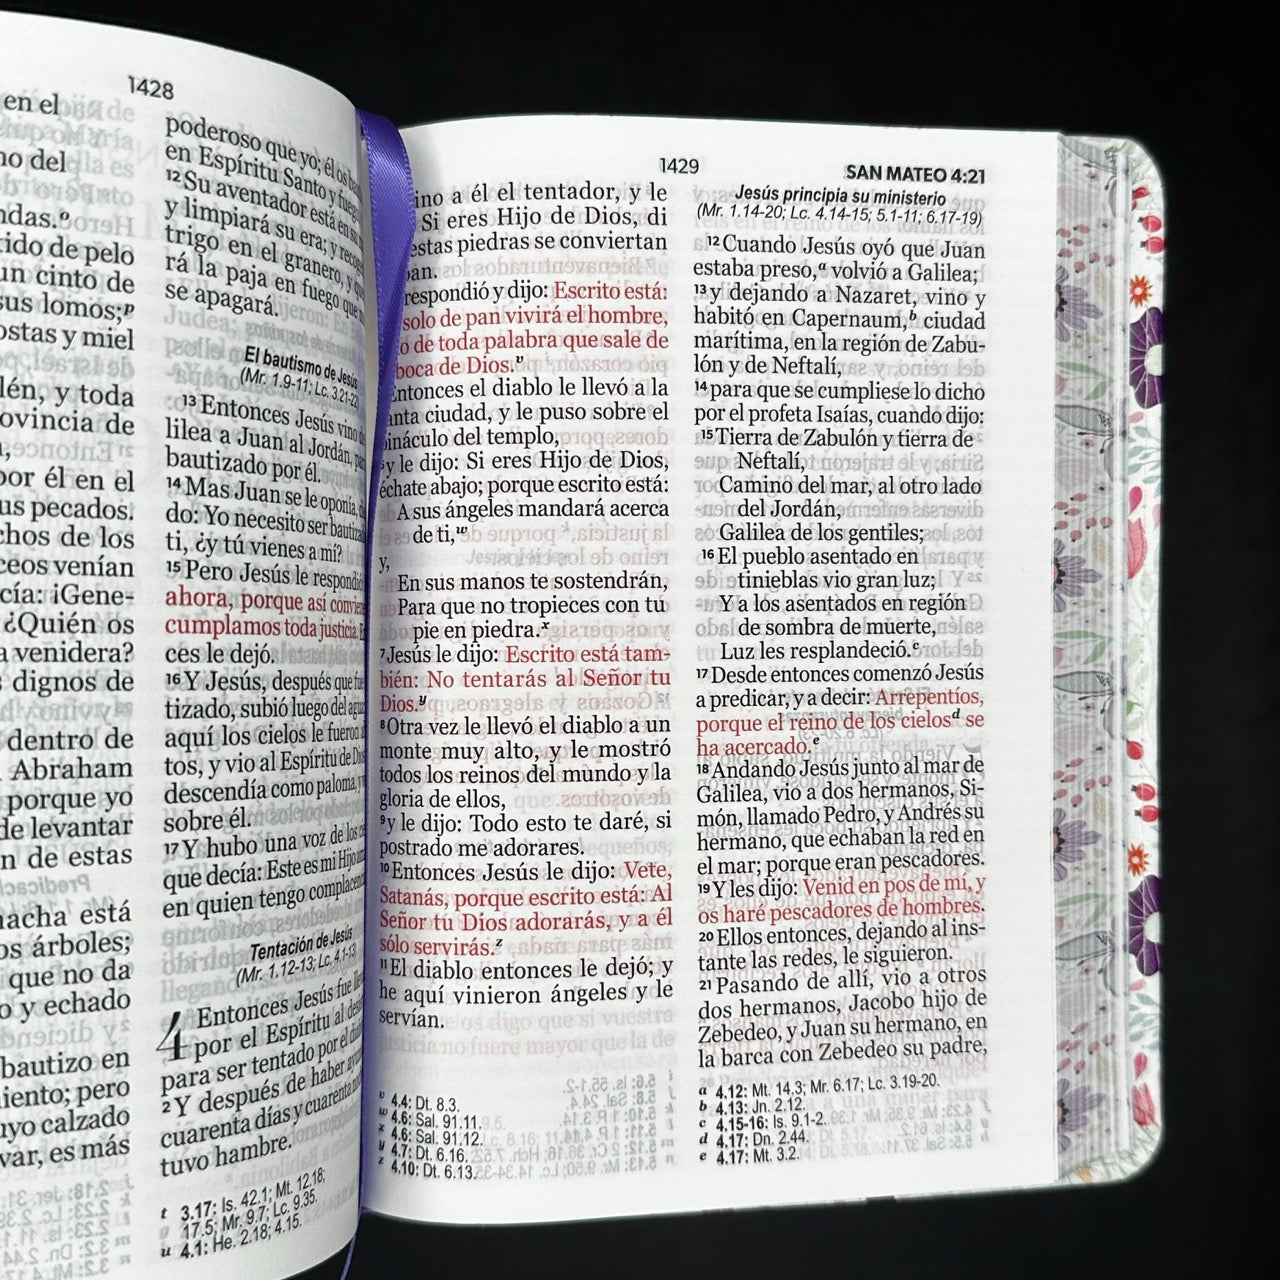 1428
en el
no del
ndas.º
tido de pelo
un cinto de
sus lomos;ᵖ
ostas y miel
lén, y toda
ovincia de
por él en el
us pecados.
chos de los
ceos venían
cía: ¡Gene-
¿Quién os
a venidera?
s dignos de
dentro de
Abraham
porque yo
de levantar
n de estas
hacha está
os árboles;
que no da
o y echado
bautizo en
miento; pero
uyo calzado
var, es más
poderoso que yo; él os
en Espíritu Santo y fuego
12 Su aventador está en su
y limpiará su era; y recoge
trigo en el granero, y
rá la paja en fuego que
se apagará.
El bautismo de Jesús
(Mr. 1.9-11; Lc. 3.21-22)
13 Entonces Jesús vino
lilea a Juan al Jordán,
bautizado por él.
14 Mas Juan se le oponía,
do: Yo necesito ser bautiza
ti, ¿y tú vienes a mí?
15 Pero Jesús le respondió
ahora, porque así convie
cumplamos toda justicia.
ces le dejó.
16 Y Jesús, después que fue
tizado, subió luego del agua
aquí los cielos le fueron
tos, y vio al Espíritu de Dios
descendía como paloma, y
sobre él.
17 Y hubo una voz de los
que decía: Este es mi Hijo
en quien tengo complacen
Tentación de Jesús
(Mr. 1.12-13; Lc. 4.1-13)
4 Entonces Jesús fue
por el Espíritu al
para ser tentado por el
2 Y después de haber
cuarenta días y cuarenta
tuvo hambre.
t 3.17: Is. 42.1; Mt. 12.18;
17.5; Mr. 9.7; Lc. 9.35.
u 4.1: He. 2.18; 4.15.
1429
SAN MATEO 4:21
ino a él el tentador, y le
Si eres Hijo de Dios, di
estas piedras se conviertan
pan.
respondió y dijo: Escrito está:
solo de pan vivirá el hombre,
o de toda palabra que sale de
boca de Dios.ᵛ
Entonces el diablo le llevó a la
anta ciudad, y le puso sobre el
pináculo del templo,
y le dijo: Si eres Hijo de Dios,
échate abajo; porque escrito está:
A sus ángeles mandará acerca
de ti,ʷ
y,
En sus manos te sostendrán,
Para que no tropieces con tu
pie en piedra.ˣ
7 Jesús le dijo: Escrito está tam-
bién: No tentarás al Señor tu
Dios.ʸ
8 Otra vez le llevó el diablo a un
monte muy alto, y le mostró
todos los reinos del mundo y la
gloria de ellos,
9 y le dijo: Todo esto te daré, si
postrado me adorares.
10 Entonces Jesús le dijo: Vete,
Satanás, porque escrito está: Al
Señor tu Dios adorarás, y a él
sólo servirás.ᶻ
11 El diablo entonces le dejó; y
he aquí vinieron ángeles y le
servían.
v 4.4: Dt. 8.3.
w 4.6: Sal. 91.11.
x 4.6: Sal. 91.12.
y 4.7: Dt. 6.16.
z 4.10: Dt. 6.13.
Jesús principia su ministerio
(Mr. 1.14-20; Lc. 4.14-15; 5.1-11; 6.17-19)
12 Cuando Jesús oyó que Juan
estaba preso,ᵃ volvió a Galilea;
13 y dejando a Nazaret, vino y
habitó en Capernaum,ᵇ ciudad
marítima, en la región de Zabu-
lón y de Neftalí,
14 para que se cumpliese lo dicho
por el profeta Isaías, cuando dijo:
15 Tierra de Zabulón y tierra de
Neftalí,
Camino del mar, al otro lado
del Jordán,
Galilea de los gentiles;
16 El pueblo asentado en
tinieblas vio gran luz;
Y a los asentados en región
de sombra de muerte,
Luz les resplandeció.ᶜ
17 Desde entonces comenzó Jesús
a predicar, y a decir: Arrepentíos,
porque el reino de los cielosᵈ se
ha acercado.ᵉ
18 Andando Jesús junto al mar de
Galilea, vio a dos hermanos, Si-
món, llamado Pedro, y Andrés su
hermano, que echaban la red en
el mar; porque eran pescadores.
19 Y les dijo: Venid en pos de mí, y
os haré pescadores de hombres.
20 Ellos entonces, dejando al ins-
tante las redes, le siguieron.
21 Pasando de allí, vio a otros
dos hermanos, Jacobo hijo de
Zebedeo, y Juan su hermano, en
la barca con Zebedeo su padre,
a 4.12: Mt. 14.3; Mr. 6.17; Lc. 3.19-20.
b 4.13: Jn. 2.12.
c 4.15-16: Is. 9.1-2.
d 4.17: Dn. 2.44.
e 4.17: Mt. 3.2.